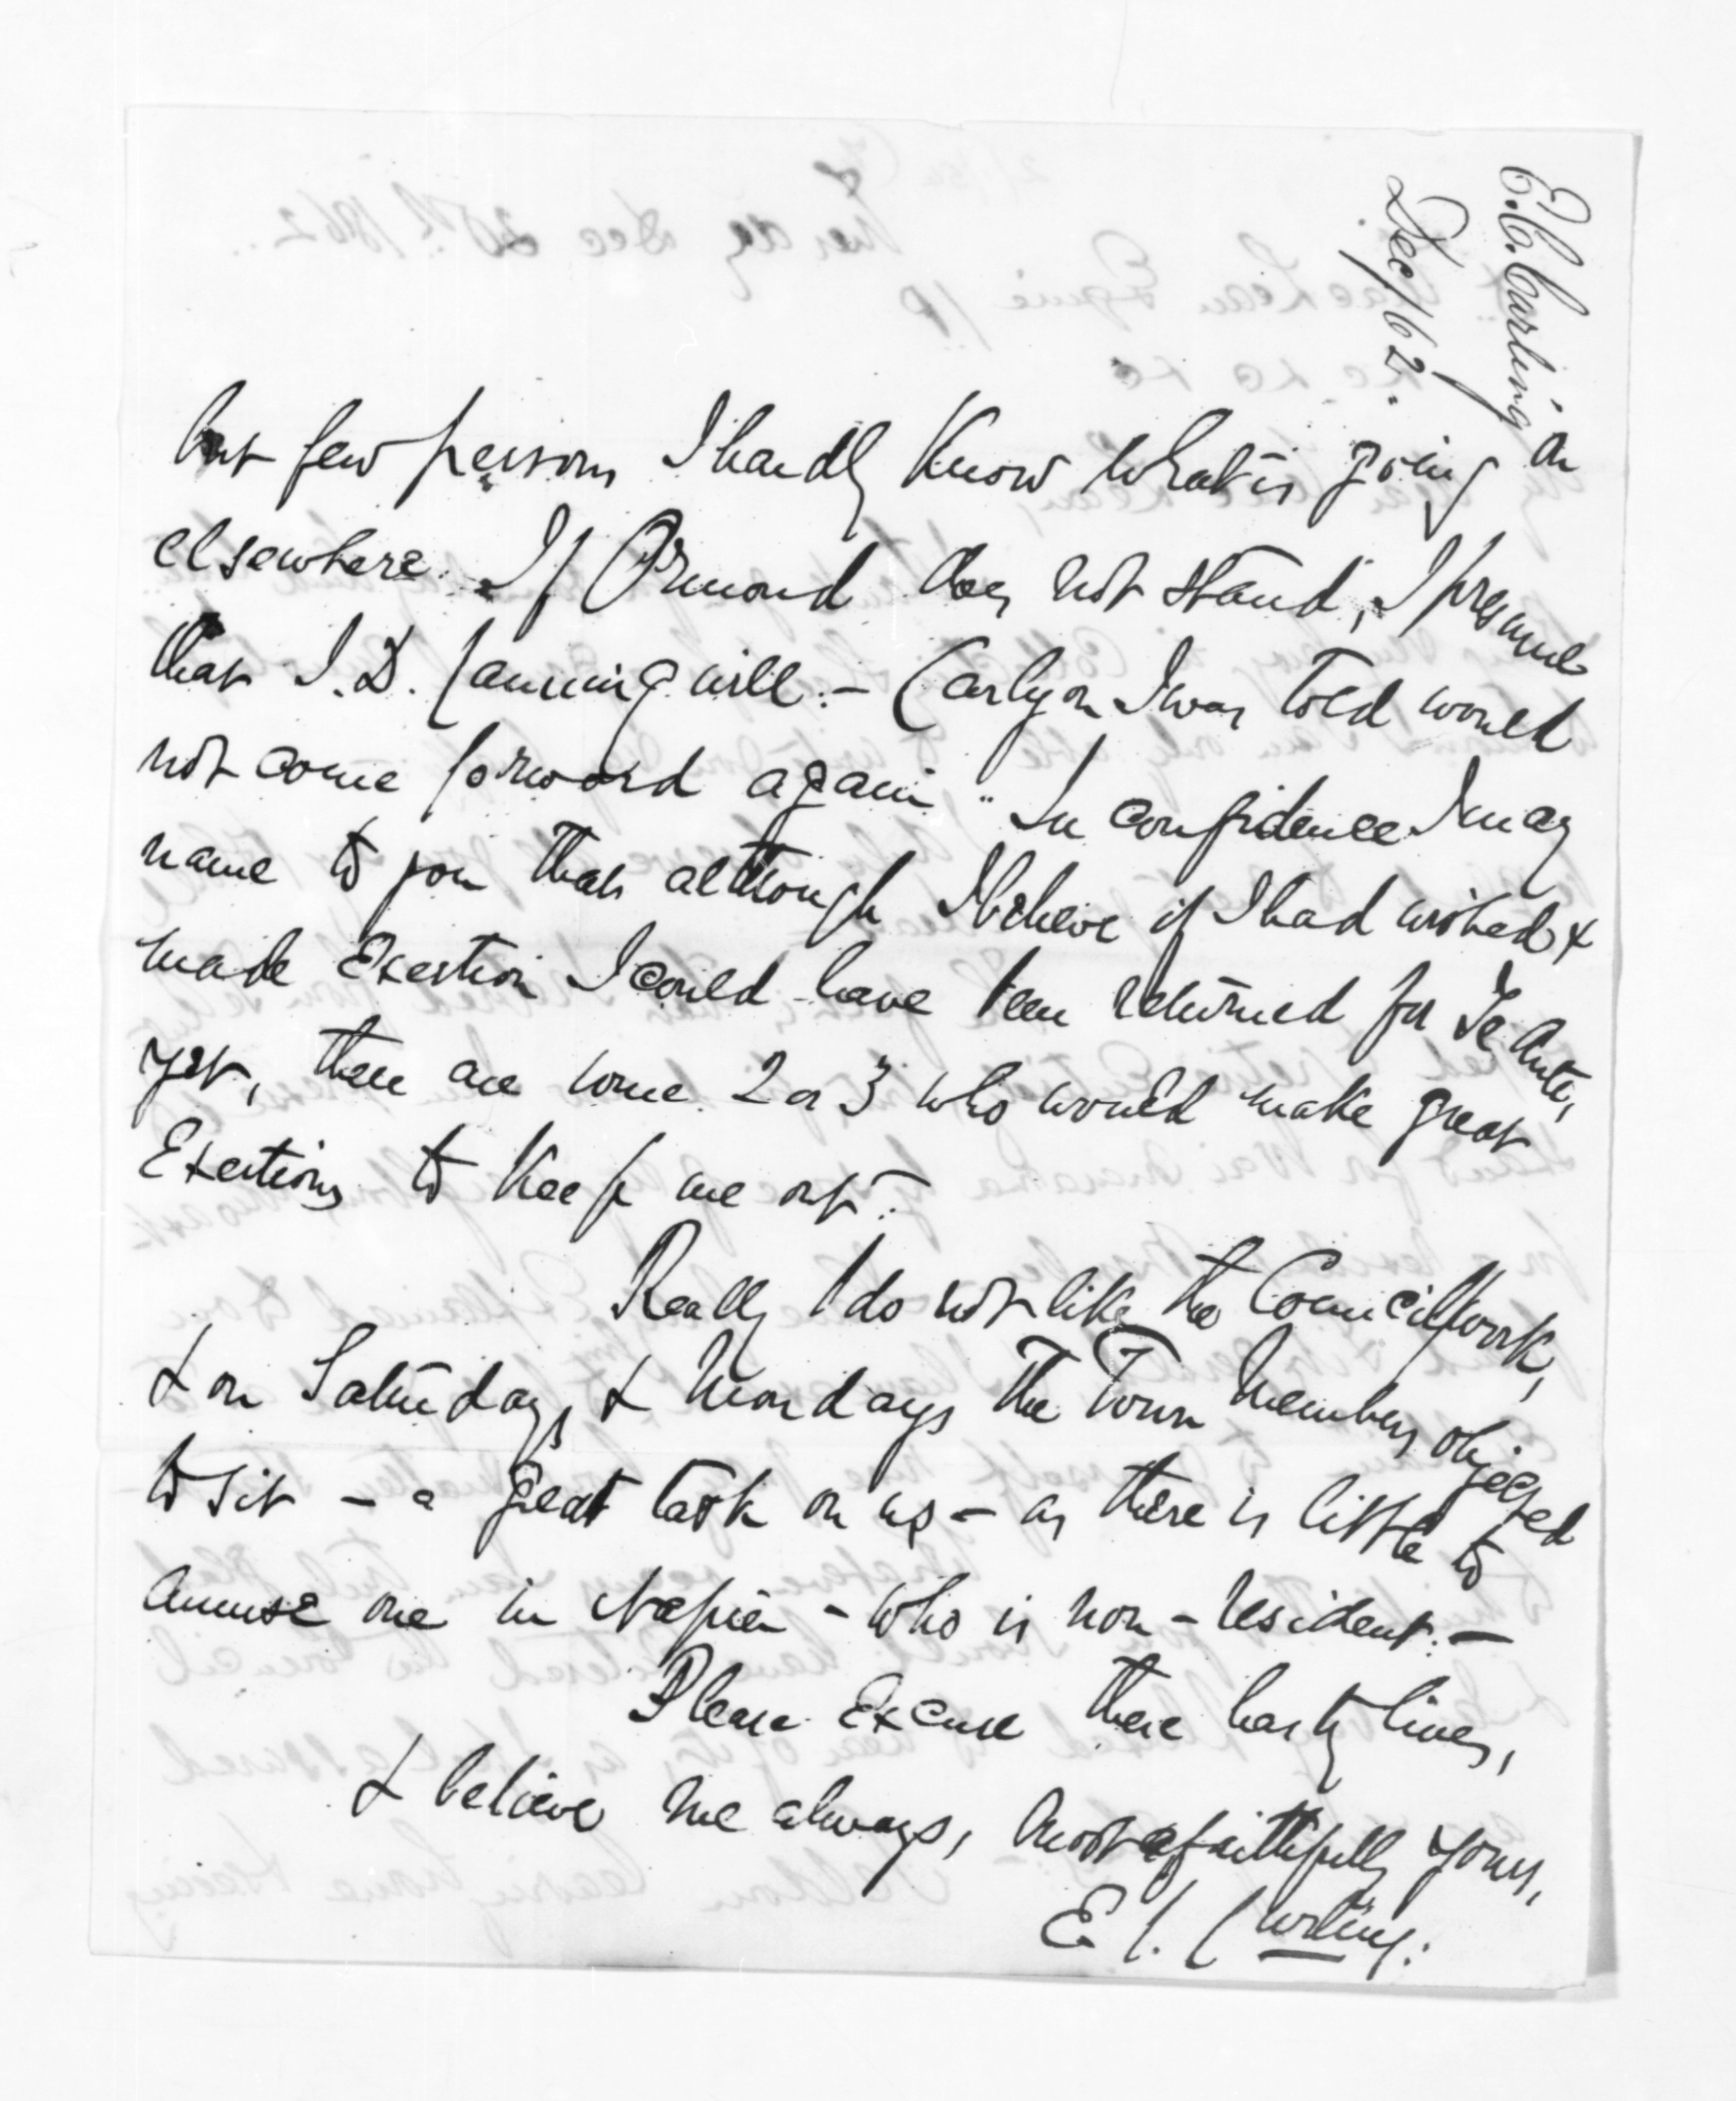 E. C. Curling
Dec/62.
but few persons I hardly know what is going on
elsewhere. If Ormond does not stand, I presume
that J. D. Canning will. - Carlyon I was told would
not come forward again. In confidence I may
name to you that although I believe if I had wished &
made Exertion I could have been returned for Te Aute,
yet, there are some 2 or 3 who would make great
Exertions to Keep me out.
Really I do not like the Council work,
& on Saturdays & Mondays the Town Members objected
to sit - a great task on us - as there is little to
Amuse one in Napier - who is non-resident. -
Please Excuse these hasty lines,
& believe me always, most faithfully yours,
E. C. Curling.